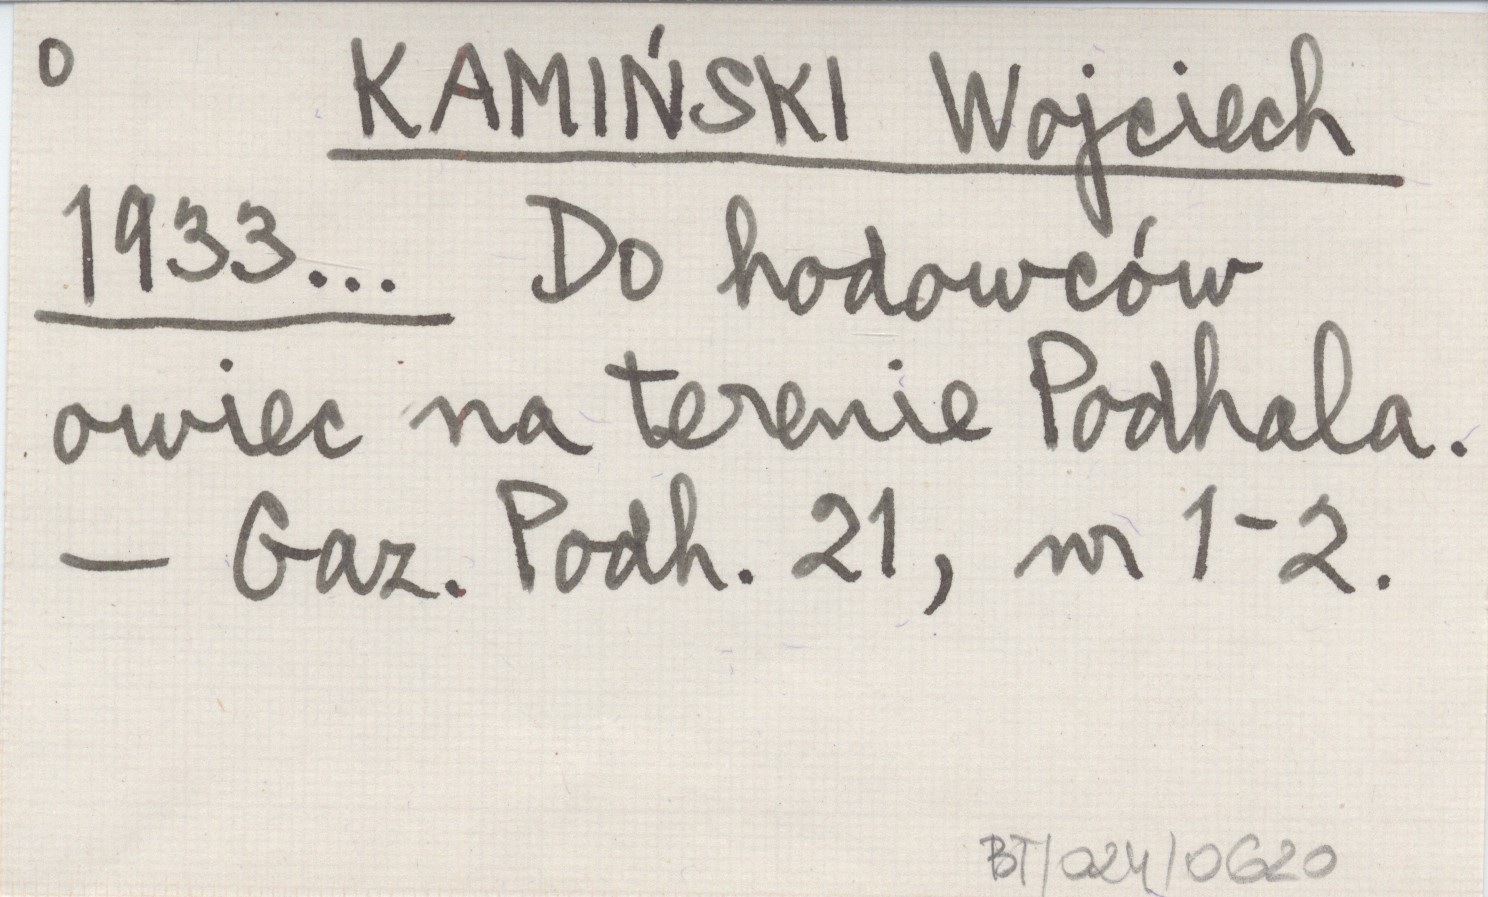 o KAMIŃSKI Wojciech
1933... Do hodowców
owiec na terenie Podhala.
— Gaz. Podh. 21, nr 1-2.
BT/024/0620